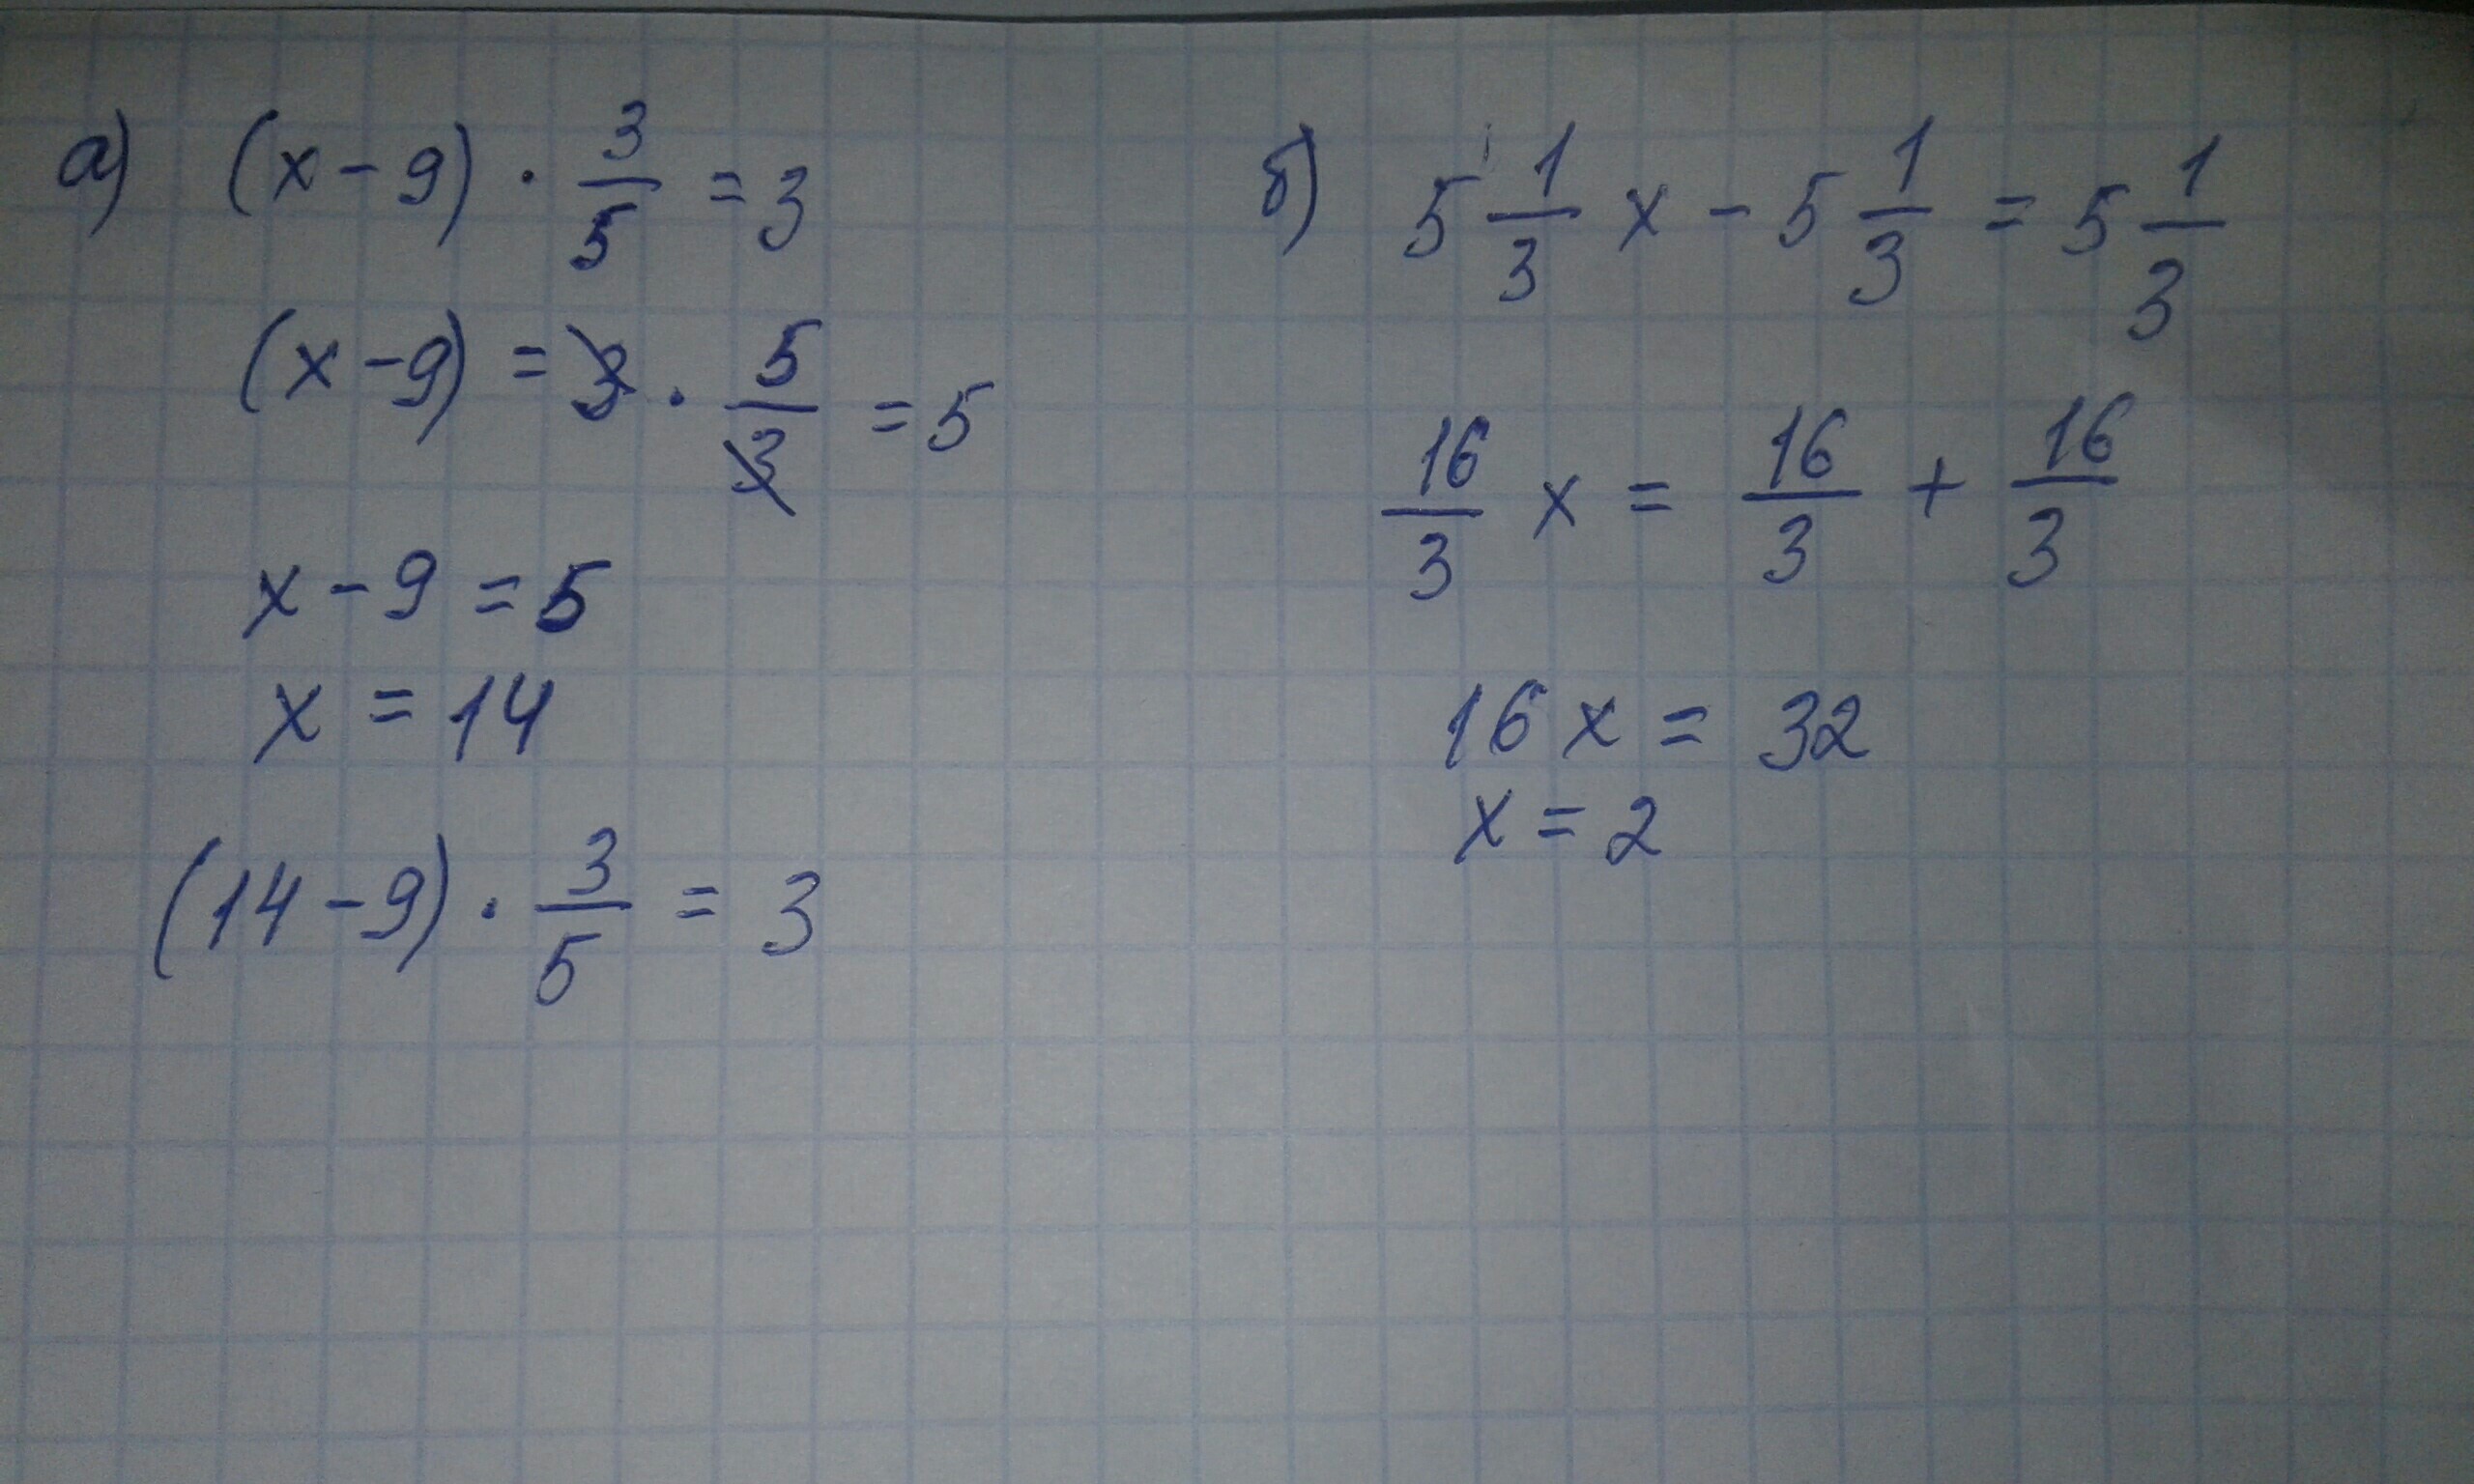 а) (x - 9) · 3/5 = 3
(x - 9) = 3 · 5/3 = 5
x - 9 = 5
x = 14
(14 - 9) · 3/5 = 3
б) 5 1/3 x - 5 1/3 = 5 1/3
16/3 x = 16/3 + 16/3
16 x = 32
x = 2